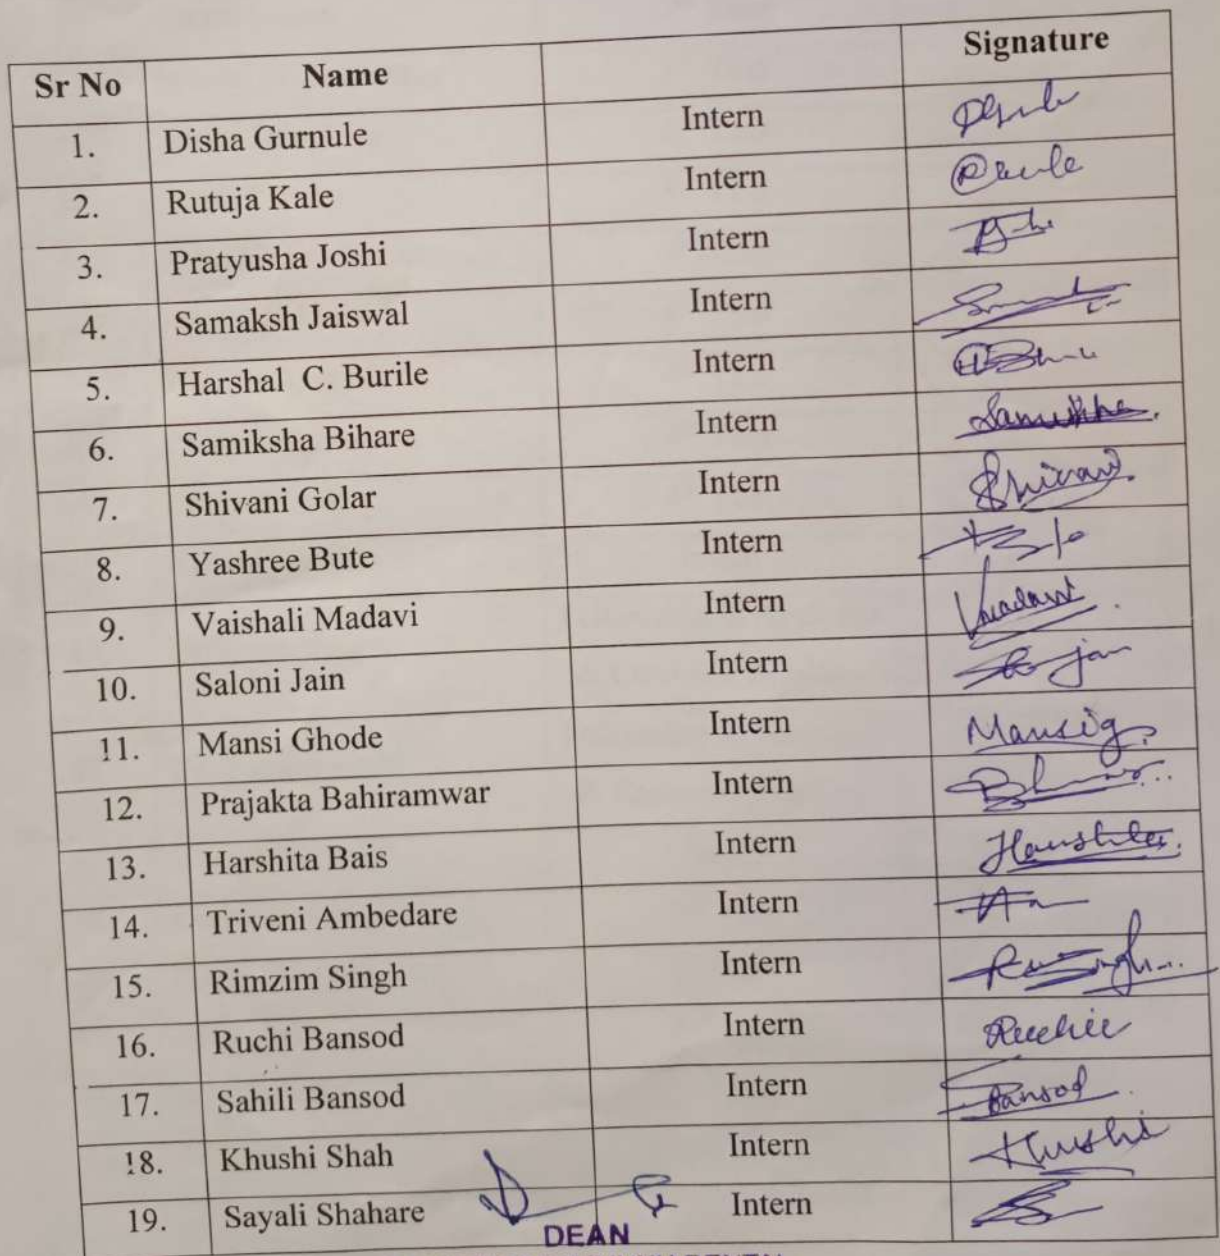 Sr No Name Signature
1. Disha Gurnule Intern
2. Rutuja Kale Intern
3. Pratyusha Joshi Intern
4. Samaksh Jaiswal Intern
5. Harshal C. Burile Intern
6. Samiksha Bihare Intern Samiksha
7. Shivani Golar Intern Shivani
8. Yashree Bute Intern
9. Vaishali Madavi Intern
10. Saloni Jain Intern
11. Mansi Ghode Intern Mansig
12. Prajakta Bahiramwar Intern
13. Harshita Bais Intern Harshita
14. Triveni Ambedare Intern
15. Rimzim Singh Intern
16. Ruchi Bansod Intern
17. Sahili Bansod Intern Bansod
18. Khushi Shah Intern Khushi
19. Sayali Shahare Intern
DEAN